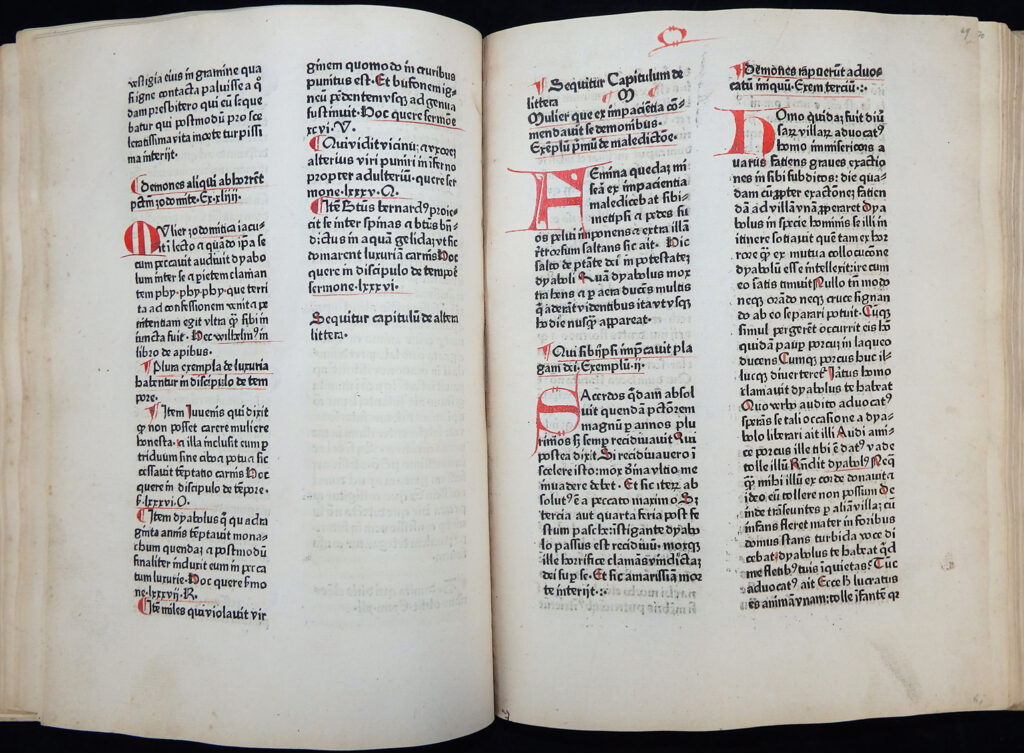 vestigia eius in gramine qua
si igne contacta paluisse a q̄
dam presbitero qui eū seque
batur qui postmodū pro sce
leratissima vita morte turpissi
ma interijt.
Demones aliqui abhorrēt
pctm̄ zodomite. Ex. xliiij.
Mulier zodomitica iacu-
it ī lecto ⁊ quādo ip̄a se
cum peccauit audiuit dyabo
lum inter se ⁊ pietem claman
tem phy·phy·phy· que terri
ta ad confessionem venit ⁊ pe
nitentiam egit vltra q̄ sibi in
iuncta fuit. Hec wilhelm⁹ in
libro de apibus.
Plura exempla de luxuria
habentur in discipulo de tem
pore.
Item Iuuenis qui dixit
ꝙ non posset carere muliere
honesta. ⁊ illa inclusit cum p
triduum sine cibo ⁊ potu ⁊ sic
cessauit tēptatio carnis Hoc
quere in discipulo de tēpore.
s. lxxxvi. O.
Item dyabolus q̄ quadra
ginta annis tēptauit mona-
chum quendaꝫ ⁊ postmodū
finaliter induxit eum in pecca
tum luxurie. Hoc quere s̄mo
ne. lxxxvij. R.
Itē miles qui violauit vir
ginem quomodo in cruribus
punitus est. Et bufonem ig-
neū pēdentem vsqꝫ ad genua
sustinuit. Hoc quere sermōe
xcvi. V.
Qui vidit vicinū ⁊ vxorē
alterius viri puniri in īferno
propter adulteriū. quere ser
mone. lxxxv. Q.
Itē Btūs bernard⁹ proie-
cit se inter spinas ⁊ btūs bn̄-
dictus in aquā gelidaꝫ vt sic
domarent luxuriā carnis Hoc
quere in discipulo de tempoē
sermone. lxxxvi.
Sequitur capitulū de altera
littera.
Sequitur Capitulum de
littera
M
Mulier que ex impaciētia cō-
mendauit se demonibus.
Exēplū pmū de maledictōe.
FEmina quedaꝫ mi
seā ex impacientia
maledicebat sibi-
metip̄i ⁊ pedes su
os pelui imponens ⁊ extra illā
rrtorsum saltans sic ait. Hic
salto de ptāte dei in potestateꝫ
dyaboli Quā dyabolus mox
trahens ⁊ p aera ducēs multis
q̄ aderāt videntibus ita vt vsqꝫ
hodie nusq̄ appareat.
Qui sibijp̄i imp̄cauit pla
gam dei. Exemplū. ij.
SAcerdos q̄dam absol
uit quendā pctōrem
magnū p annos plu
rimos s̄ semp recidiuauit Qui
postea dixit. Si recidiuauero ī
scelere isto: mox diuīa vltio me
inuadere debet. Et sic iterꝫ ab
solut⁹ ē a peccato maximo Sꝫ
tercia aut quarta feria post fe
stum pasche: īstigante dyabo
lo passus est recidiuū. moxqꝫ
ille horrifice clamās vindictaꝫ
dei sup̄ se. Et sic amarissīa mor
te interijt.
Demones rapuerūt aduo-
catū iniquū. Exem̄ terciū.
HOmo quidaꝫ fuit diū
saꝝ villaꝝ aduocat⁹
homo immisericors ⁊
auarus fatiens graues exactio
nes in sibi subditos: die qua-
dam cū ꝓpter exactōneꝫ fatien
dā ad villā vnā ꝓperaret dya
bolus in specie hominis se illi in
itinere sotiauit quē tam ex hor
rore. ꝙ ex mutua collocucōne
dyabolū esse intellexit: ire cum
eo satis timuit Nullo tn̄ modo
neqꝫ orādo neqꝫ cruce signan
do ab eo separari potuit. Cūqꝫ
simul pergerēt occurrit eis hō
quidā paup porcū in laqueo
ducens Cumqꝫ porcus huc il-
lucqꝫ diuerteret Iratus homo
clamauit dyabolus te habeat
Quo verbo audito aduocat⁹
sperās se tali occasione a dya-
bolo liberari ait illi Audi ami-
ce porcus ille tibi ē dat⁹ vade
tolle illū Rn̄dit dyabol⁹ Neq̄
q̄ mihi illū ex corde donauit ⁊
ideo eū tollere non possum De
inde trāseuntes p aliā villaꝫ cū
infans fleret mater in foribus
domus stans turbida voce di
cebat: dyabolus te habeat q̄d
me fletib⁹ tuis inquietas? Tūc
aduocat⁹ ait Ecce h̄ lucratus
es animā vnam: tolle īfantē qꝛ